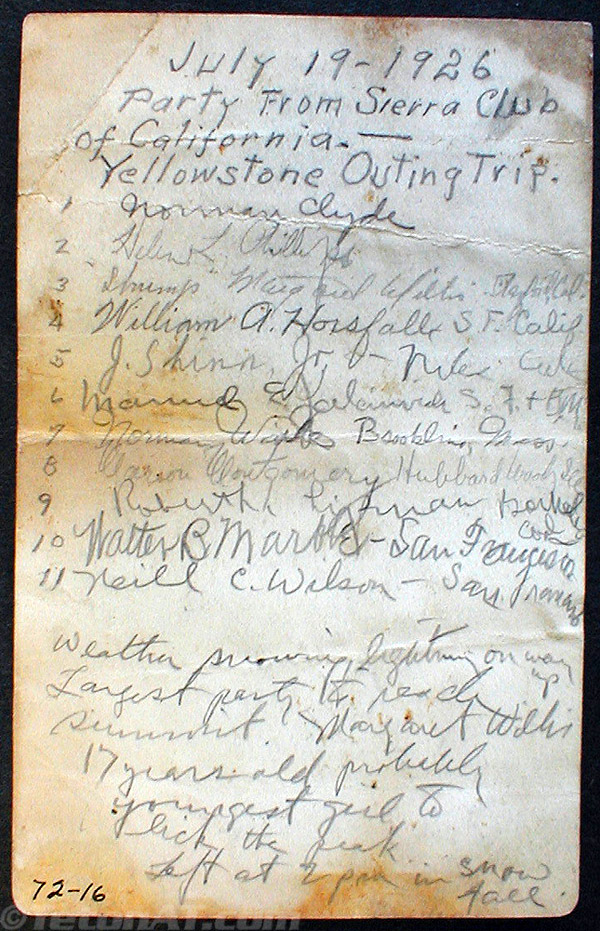 July 19-1926
Party From Sierra Club
of California.—
Yellowstone Outing Trip.
1 Norman Clyde
2 Helen L. Phillips
3 "Shrimp" Margaret Willis
4 William A. Horsfall S.F. Calif
5 J. Shinn, Jr. - Niles
6 S.F. +
7 Norman Brookline, Mass.
8 Montgomery Hubbard Woods
9 Robert L. Lipman Berkeley
10 Walter B. Marble - San Francisco
11 Neill C. Wilson - San Francisco
Weather snowing, lightning on way
up
Largest party to reach
summit. Margaret Willis
17 years old probably
youngest girl to
lick the peak
Left at 2 pm in snow
fall.
72-16
©TetonAT.com